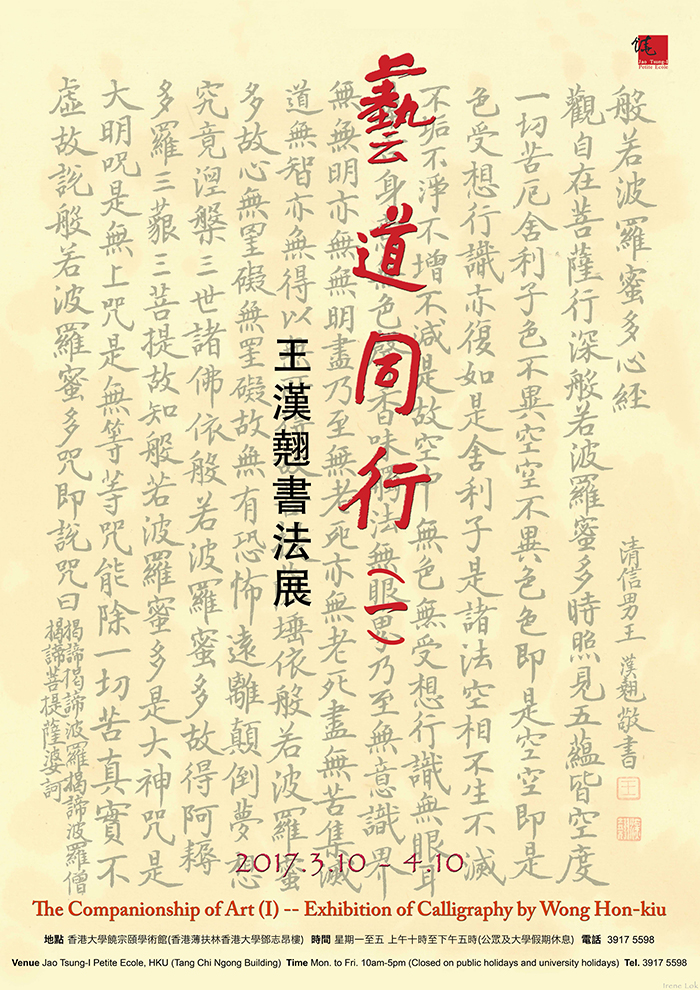 饒
Jao Tsung-I
Petite Ecole
藝道同行(一)
王漢翹書法展
般若波羅蜜多心經
觀自在菩薩行深般若波羅蜜多時照見五蘊皆空度
一切苦厄舍利子色不異空空不異色色即是空空即是
色受想行識亦復如是舍利子是諸法空相不生不滅
不垢不淨不增不減是故空中無色無受想行識無眼耳
身色聲香味觸法無眼界乃至無意識界
無無明亦無無明盡乃至無老死亦無老死盡無苦集滅
道無智亦無得以埵依般若波羅蜜
多故心無罣礙無罣礙故無有恐怖遠離顛倒夢想
究竟涅槃三世諸佛依般若波羅蜜多故得阿耨
多羅三藐三菩提故知般若波羅蜜多是大神咒是
大明咒是無上咒是無等等咒能除一切苦真實不
虛故說般若波羅蜜多咒即說咒曰
揭諦揭諦波羅揭諦波羅僧
揭諦菩提薩婆訶
清信男王漢翹敬書
2017.3.10 - 4.10
The Companionship of Art (I) -- Exhibition of Calligraphy by Wong Hon-kiu
地點 香港大學饒宗頤學術館(香港薄扶林香港大學鄧志昂樓) 時間 星期一至五 上午十時至下午五時(公眾及大學假期休息) 電話 3917 5598
Venue Jao Tsung-I Petite Ecole, HKU (Tang Chi Ngong Building) Time Mon. to Fri. 10am-5pm (Closed on public holidays and university holidays) Tel. 3917 5598